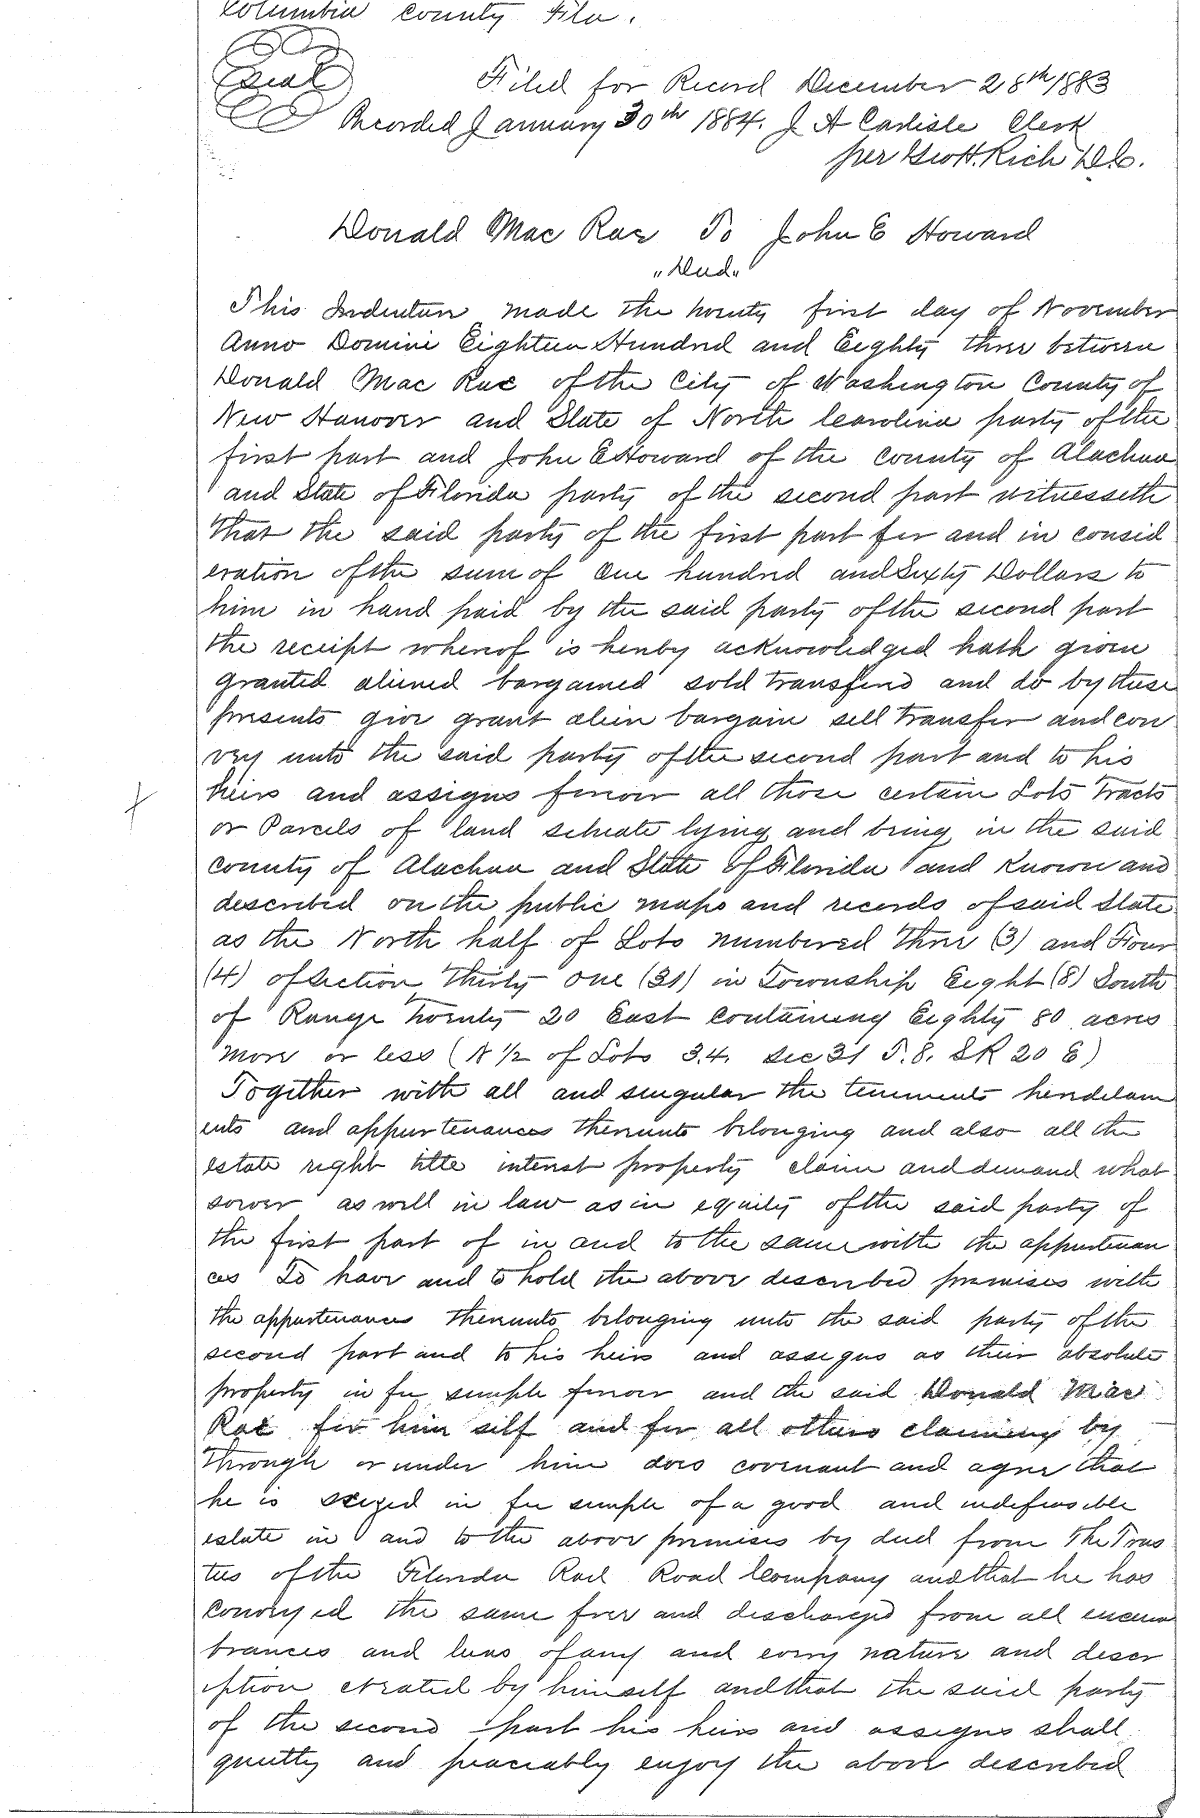 Columbia County Fla.
Seal
Filed for Record December 28th 1883
Recorded January 30th 1884. J A Carlisle Clerk
per Geo H. Rich D.C.
Donald Mac Rae To John E Howard
"Deed"
This Indenture made the twenty first day of November
Anno Domini Eighteen Hundred and Eighty three between
Donald Mac Rae of the City of Washington County of
New Hanover and State of North Carolina party of the
first part and John E Howard of the County of Alachua
and State of Florida party of the second part witnesseth
that the said party of the first part for and in consid
eration of the sum of One hundred and Sixty Dollars to
him in hand paid by the said party of the second part
the receipt whereof is hereby acknowledged hath given
granted aliened bargained sold transferred and do by these
presents give grant alien bargain sell transfer and con
vey unto the said party of the second part and to his
heirs and assigns forever all those certain Lots Tracts
or Parcels of land situate lying and being in the said
County of Alachua and State of Florida and Known and
described on the public maps and records of said State
as the North half of Lots numbered Three (3) and Four
(4) of Section Thirty One (31) in Township Eight (8) South
of Range Twenty 20 East Containing Eighty 80 acres
more or less (N 1/2 of Lots 3.4. Sec 31 T.8. S R 20 E)
Together with all and singular the tenements heredetam
ents and appurtenances thereunto belonging and also all the
estate right title interest property claim and demand what
soever as well in law as in equity of the said party of
the first part of in and to the same with the appurtenan
ces To have and to hold the above described premises with
the appurtenances thereunto belonging unto the said party of the
second part and to his heirs and assigns as their absolute
property in fee simple forever and the said Donald Mac
Rae for him self and for all others claiming by
through or under him does covenant and agree that
he is seized in fee simple of a good and indefeasible
estate in and to the above premises by deed from The Trus
tees of the Florida Rail Road Company and that he has
Conveyed the same free and discharged from all encum
brances and liens of any and every nature and descr
iption created by himself and that the said party
of the second part his heirs and assigns shall
quietly and peaceably enjoy the above described